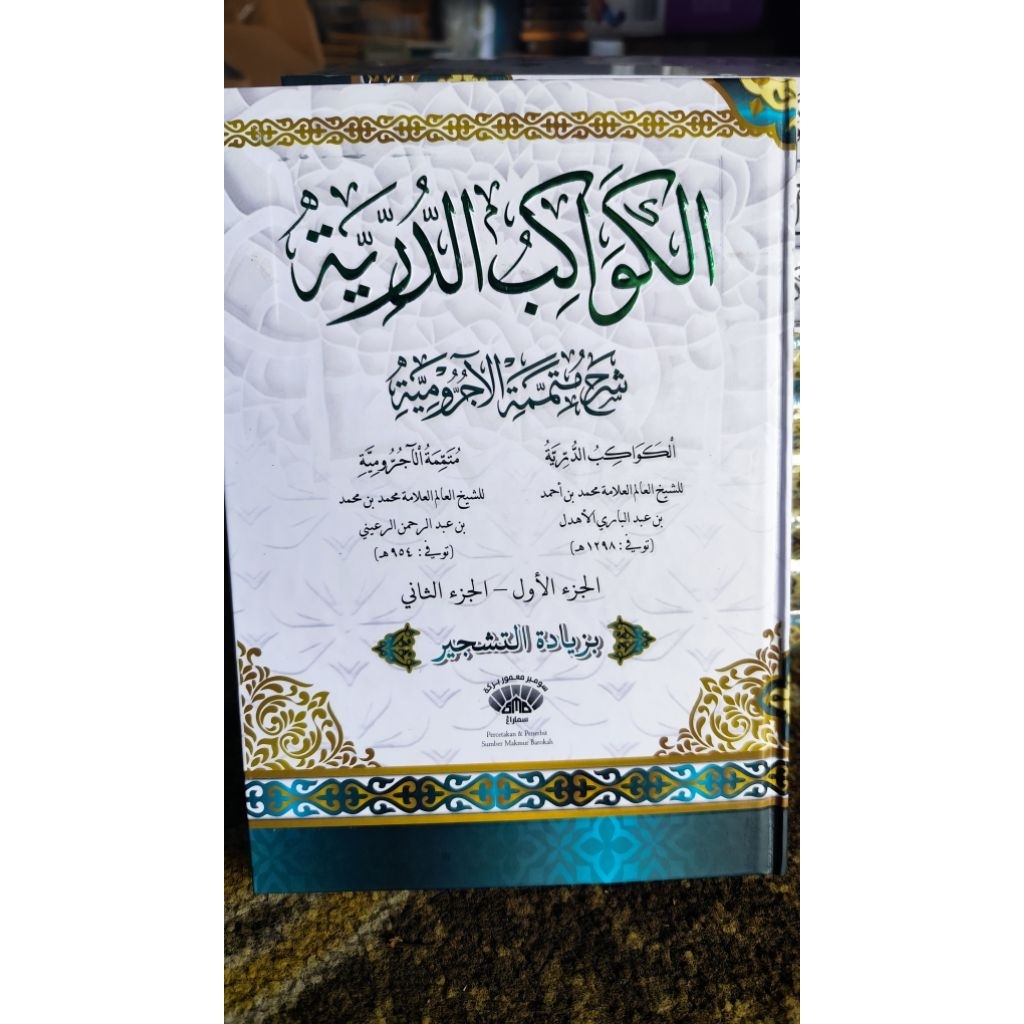 الكَوَاكِبُ الدُّرِّيَّة
شرح مُتَمِّمَة الآجُرُّومِيَّة
اَلْكَوَاكِبُ الدُّرِّيَّةُ
للشيخ العالم العلامة محمد بن أحمد
بن عبد الباري الأهدل
(توفي: ١٢٩٨هـ)
مُتَمِّمَةُ الْآجُرُّومِيَّةِ
للشيخ العالم العلامة محمد بن محمد
بن عبد الرحمن الرعيني
(توفي: ٩٥٤هـ)
الجزء الأول – الجزء الثاني
بزيادة التشجير
سومبر معمور بركة
SMB
سماراڠ
Percetakan & Penerbit
Sumber Makmur Barokah